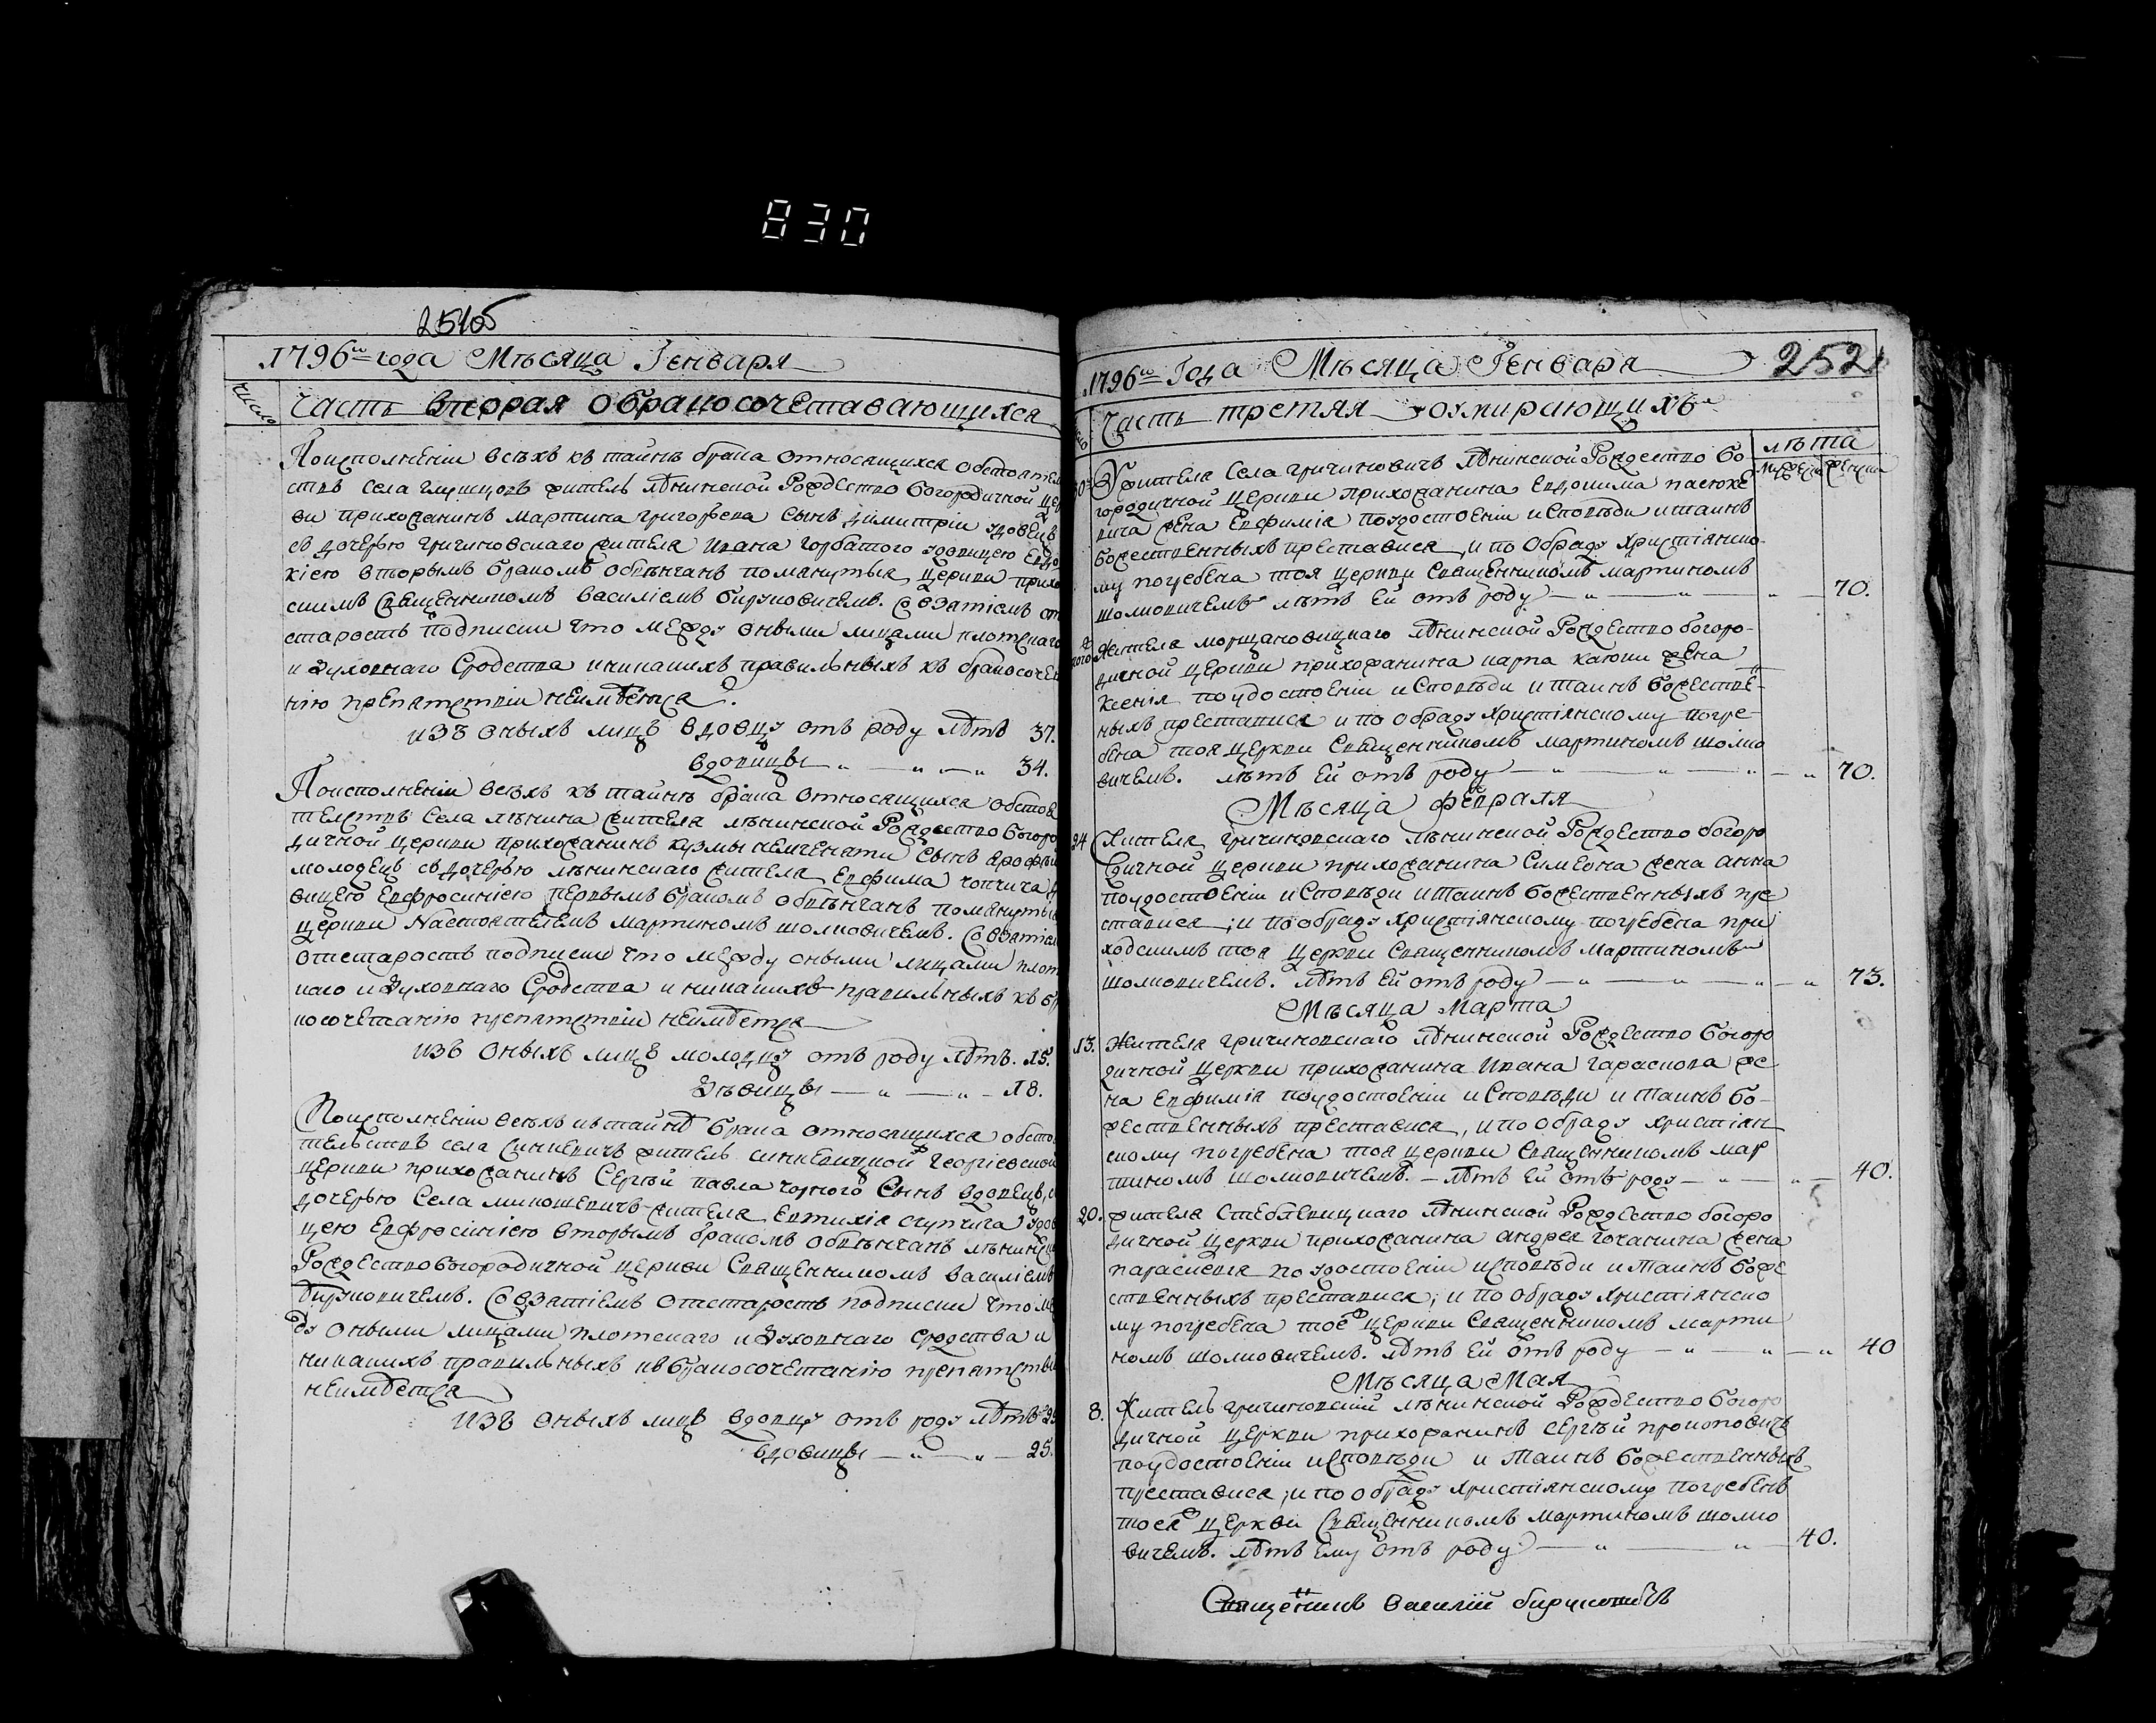 830
251об
1796го года Мѣсяца Генваря
число
Часть вторая обракосочетавающихся
Поисполненіи всѣхъ къ тайнѣ брака относящихся обстоятел
ствъ села глушцовъ житель лѣнинской Рождество богородичной цер
кви прихожанинъ мартина григорьева сынъ димитріи удовецъ
съ дочерью гричиновскаго жителя ивана горбатого удовицею Евдо
кіею вторымъ бракомъ обвѣнчанъ помянутыя церкви прихо
скимъ священникомъ василіемъ бируковичемъ. Совзатіемъ от
старостъ подписки что между оными лицами плотскаго
и духовнаго сродства иникакихъ правильныхъ къ бракосочета
нію препятствіи неимѣется.
изъ оныхъ лицъ вдовцу отъ роду лѣтъ 37.
вдовицы — „ — „ — „ 34.
Поисполненіи всѣхъ къ тайнѣ брака относящихся обстоя
телствъ села лѣнина жителя лѣнинской Рождество богоро
дичной церкви прихожанинъ кузмы немченяти сынъ
молодецъ съ дочерью лѣнинскаго жителя Евфима чопчича
вицею Евфросиніею первымъ бракомъ обвѣнчанъ помянутыя
церкви Настоятелемъ мартиномъ шолковичемъ. Совзатіем
отстаростъ подписки что между оными лицами плот
скаго и духовнаго сродства и никакихъ правильныхъ къ бра
косочетанію препятствіи неимѣется
изъ оныхъ лицъ молодцу отъ роду лѣтъ. 15.
дѣвицы — „ — „ — 18.
Поисполненіи всѣхъ къ тайнѣ брака относящихся обсто
тельствъ села синкевичъ житель синкевицкой георгіевской
церкви прихожанинъ Сергѣй павла чорного сынъ вдовецъ, с
дочерью села микошевичъ жителя Евтихія ступчича удов
цею Евфросиніею вторымъ бракомъ обвѣнчанъ лѣнинской
Рождествобогородичной церкви священникомъ василіемъ
бируковичемъ. Совзатіемъ отстаростъ подписки что ме
ду оными лицами плотскаго и духовнаго сродства и
никакихъ правильныхъ къ бракосочетанію препятствіи
неимѣется
изъ оныхъ лицъ вдовцу отъ роду лѣтъ
вдовицы — „ — „ — 25.
1796го Года Мѣсяца Генваря
252
Часть третяя — оумирающихъ
лѣта
Мужеска женска
30 Жителя села гричиновичъ лѣнинской Рождество бо-
городичной церкви прихожанина Евдокима пастюхе
вича жена Евфимія поудостоеніи исповѣди итаинъ
божественныхъ преставися, и по обряду христіянско-
му погребена тоя церкви священникомъ мартиномъ
шолковичемъ лѣтъ ей отъ роду — „ — „ — „ — 70.
Жителя морщановицкаго лѣнинской Рождество богоро-
дичной церкви прихожанина карпа катюхи жена
Ксенія поудостоеніи исповѣди и таинъ божестве-
ныхъ преставися и по обряду христіянскому погре-
бена тоя церкви священникомъ мартиномъ шолко
вичемъ. лѣтъ ей отъ роду — „ — „ — „ — „ 70.
Мѣсяца февраля
24 Жителя гричиновскаго лѣнинской Рождество богоро
дичной церкви прихожанина Симеона жена анна
поудостоеніи исповѣди итаинъ божественныхъ пре
ставися; и по обряду христіянскому погребена при
ходскимъ тоя церкви священникомъ мартиномъ
шолковичемъ. лѣтъ ей отъ роду — „ — „ — „ — „ 73.
Мѣсяца марта
13. Жителя гричиновскаго лѣнинской Рождество богоро
дичной церкви прихожанина ивана гараскова же
на Евфимія поудостоеніи исповѣди и таинъ бо-
жественныхъ преставися, ипо обряду христіян
скому погребена тоя церкви священникомъ мар
тиномъ шолковичемъ. — лѣтъ ей отъ роду — „ — „ — 40.
20. Жителя стеблевицкаго лѣнинской Рождество богоро
дичной церкви прихожанина андрея гочанина жена
параскевія по удостоеніи исповѣди и таинъ боже
ственныхъ преставися; и по обряду христіянско
му погребена тоей церкви священникомъ марти
номъ шолковичемъ. лѣтъ ей отъ роду — „ — „ — „ 40
Мѣсяца Мая
8. Житель гричиновскій лѣнинской Рождество богоро
дичной церкви прихожанинъ сергѣй прокоповичъ
поудостоеніи исповѣди и таинъ божественныхъ
преставися; и по обряду христіянскому погребенъ
тоея церкви священникомъ мартиномъ шолко
вичемъ. лѣтъ ему отъ роду — „ — „ — 40.
Священникъ василій бируковичъ